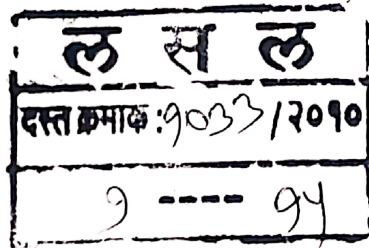 ल स ल
दस्त क्रमाक :१०३३/२०१०
१ ---- १५